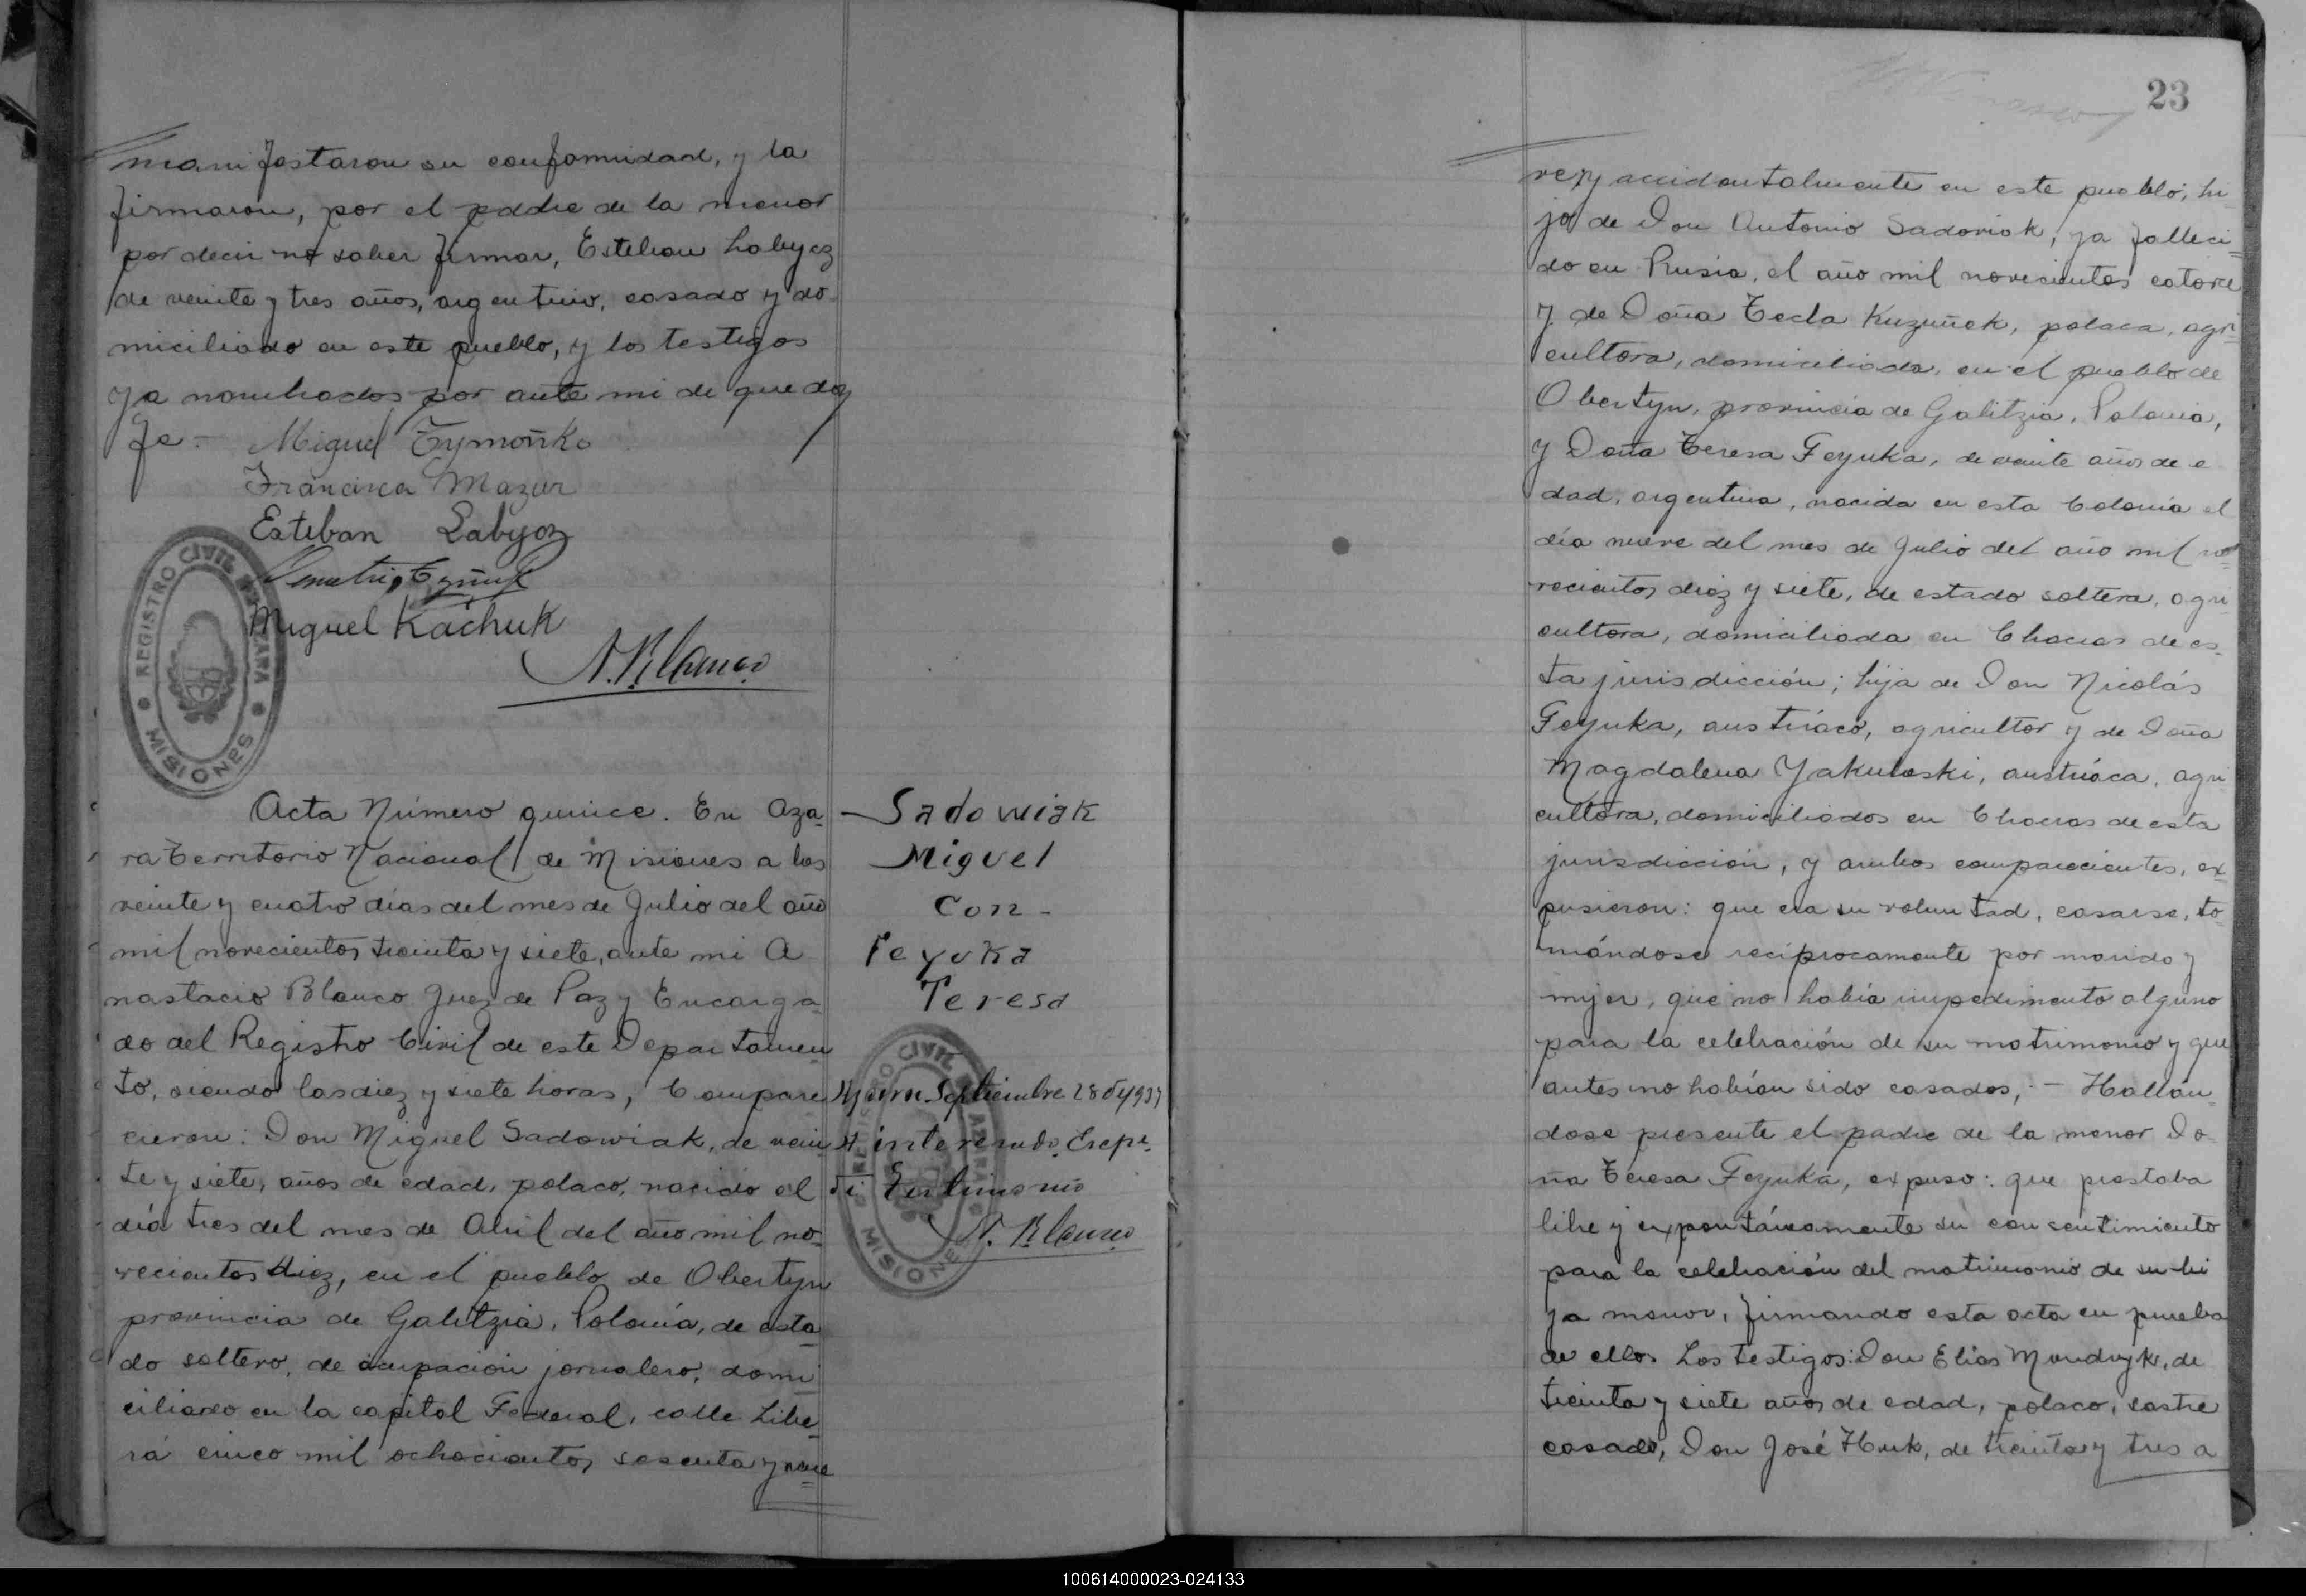 manifestaron su conformidad, y la
firmaron, por el padre de la menor
por decir no saber firmar, Esteban Labyoz
de veinte y tres años, argentino, casado y do-
miciliado en este pueblo, y los testigos
ya nombrados por ante mi de que doy
fe.- Miguel Tymoñko
Francisca Mazur
Esteban Labyoz
Miguel Kachuk
A. Blanco
REGISTRO CIVIL AZARA
MISIONES
Acta Número quince. En Aza-
ra Territorio Nacional de Misiones a los
veinte y cuatro días del mes de Julio del año
mil novecientos treinta y siete, ante mi A-
nastacio Blanco Juez de Paz y Encarga-
do del Registro Civil de este Departamen-
to, siendo las diez y siete horas, Compare
cieron: Don Miguel Sadowiak, de vein
te y siete, años de edad, polaco, nacido el
día tres del mes de Abril del año mil no-
vecientos diez, en el pueblo de Obertyn
provincia de Galitzia, Polonia, de esta-
do soltero, de ocupación jornalero, domi-
ciliado en la capital Federal, calle Libe-
rá cinco mil ochocientos sesenta y nue
Sadowiak
Miguel
Con-
Feyuka
Teresa
Septiembre 28 de 1937
A. Blanco
REGISTRO CIVIL AZARA
MISIONES
23
ve, y accidentalmente en este pueblo; hi-
jo de Don Antonio Sadoviak, ya falleci-
do en Rusia, el año mil novecientos catorce
y de Doña Tecla Kuzuñek, polaca, agri-
cultora, domiciliada, en el pueblo de
Obertyn, provincia de Galitzia, Polonia,
y Doña Teresa Feyuka, de veinte años de e
dad, argentina, nacida en esta Colonia el
día nueve del mes de Julio del año mil no-
vecientos diez y siete, de estado soltera, agri-
cultora, domiciliada en Chacras de es-
ta jurisdicción; hija de Don Nicolás
Feyuka, austríaco, agricultor y de Doña
Magdalena Yakuboski, austríaca, agri
cultora, domiciliados en Chacras de esta
jurisdicción, y ambos comparecientes, ex-
pusieron: que era su voluntad, casarse, to-
mándose recíprocamente por marido y
mujer, que no había impedimento alguno
para la celebración de su matrimonio y que
antes no habían sido casados; - Hallán-
dose presente el padre de la menor Do-
ña Teresa Feyuka, expuso: que prestaba
libre y expontáneamente su consentimiento
para la celebración del matrimonio de su hi
ja menor, firmando esta acta en prueba
de ello. Los testigos: Don Elías Mondryk, de
treinta y siete años de edad, polaco, sastre
casado, Don José Huk, de treinta y tres a
100614000023-024133